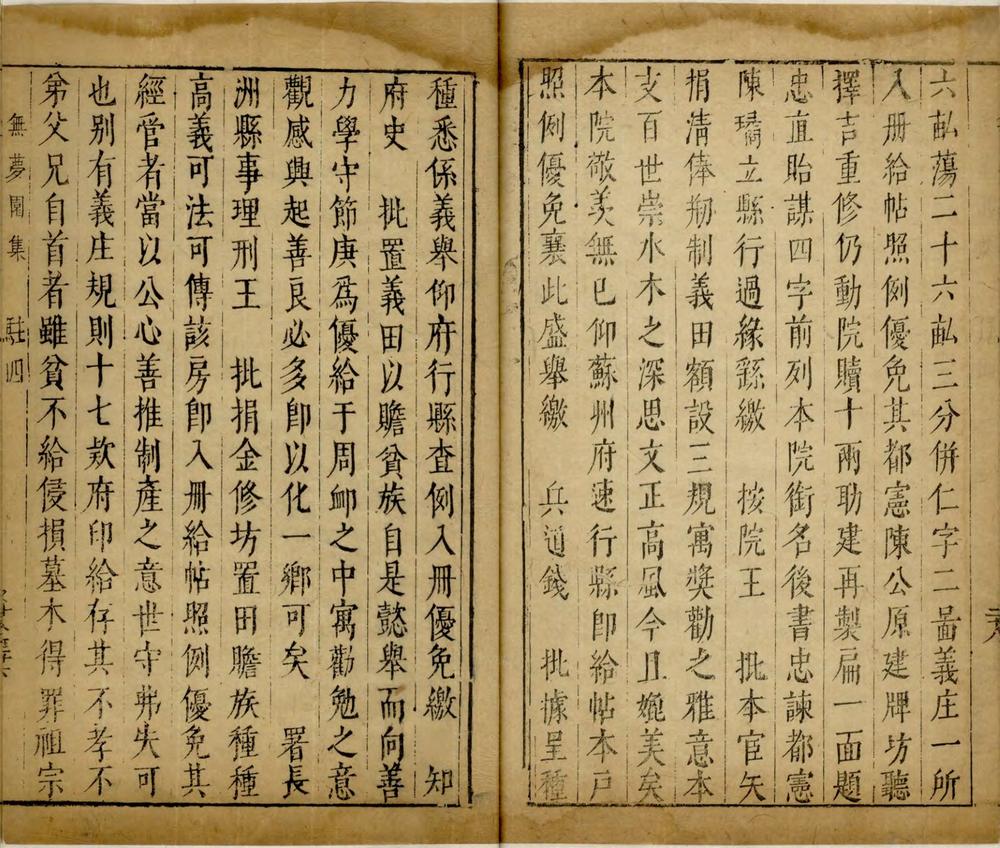 六畆蕩二十六畆三分併仁字二啚義庄一所
入册給帖照例優免其都憲陳公原建牌坊聽
擇吉重修仍動院贖十兩助建再製扁一面題
忠直貽謀四字前列本院銜名後書忠諫都憲
陳璚立縣行過緣繇繳　按院王　批本宦矢
捐淸俸剏制義田額設三規寓奬勸之雅意本
支百世崇水木之深思文正高風今且媲美矣
本院敬羡無已仰蘇州府速行縣卽給帖本戸
照例優免襄此盛舉繳　兵道錢　批據呈種
種悉係義舉仰府行縣查例入冊優免繳　知
府史　批置義田以贍貧族自是懿舉而向善
力學守節庚爲優給于周䘏之中寓勸勉之意
觀感興起善良必多卽以化一鄉可矣　署長
洲縣事理刑王　批捐金修坊置田贍族種種
高義可法可傳該房卽入冊給帖照例優免其
經管者當以公心善推制產之意世守弗失可
也別有義庄規則十七款府印給存其不孝不
弟父兄自首者雖貧不給侵損墓木得罪祖宗
無夢園集
駐四